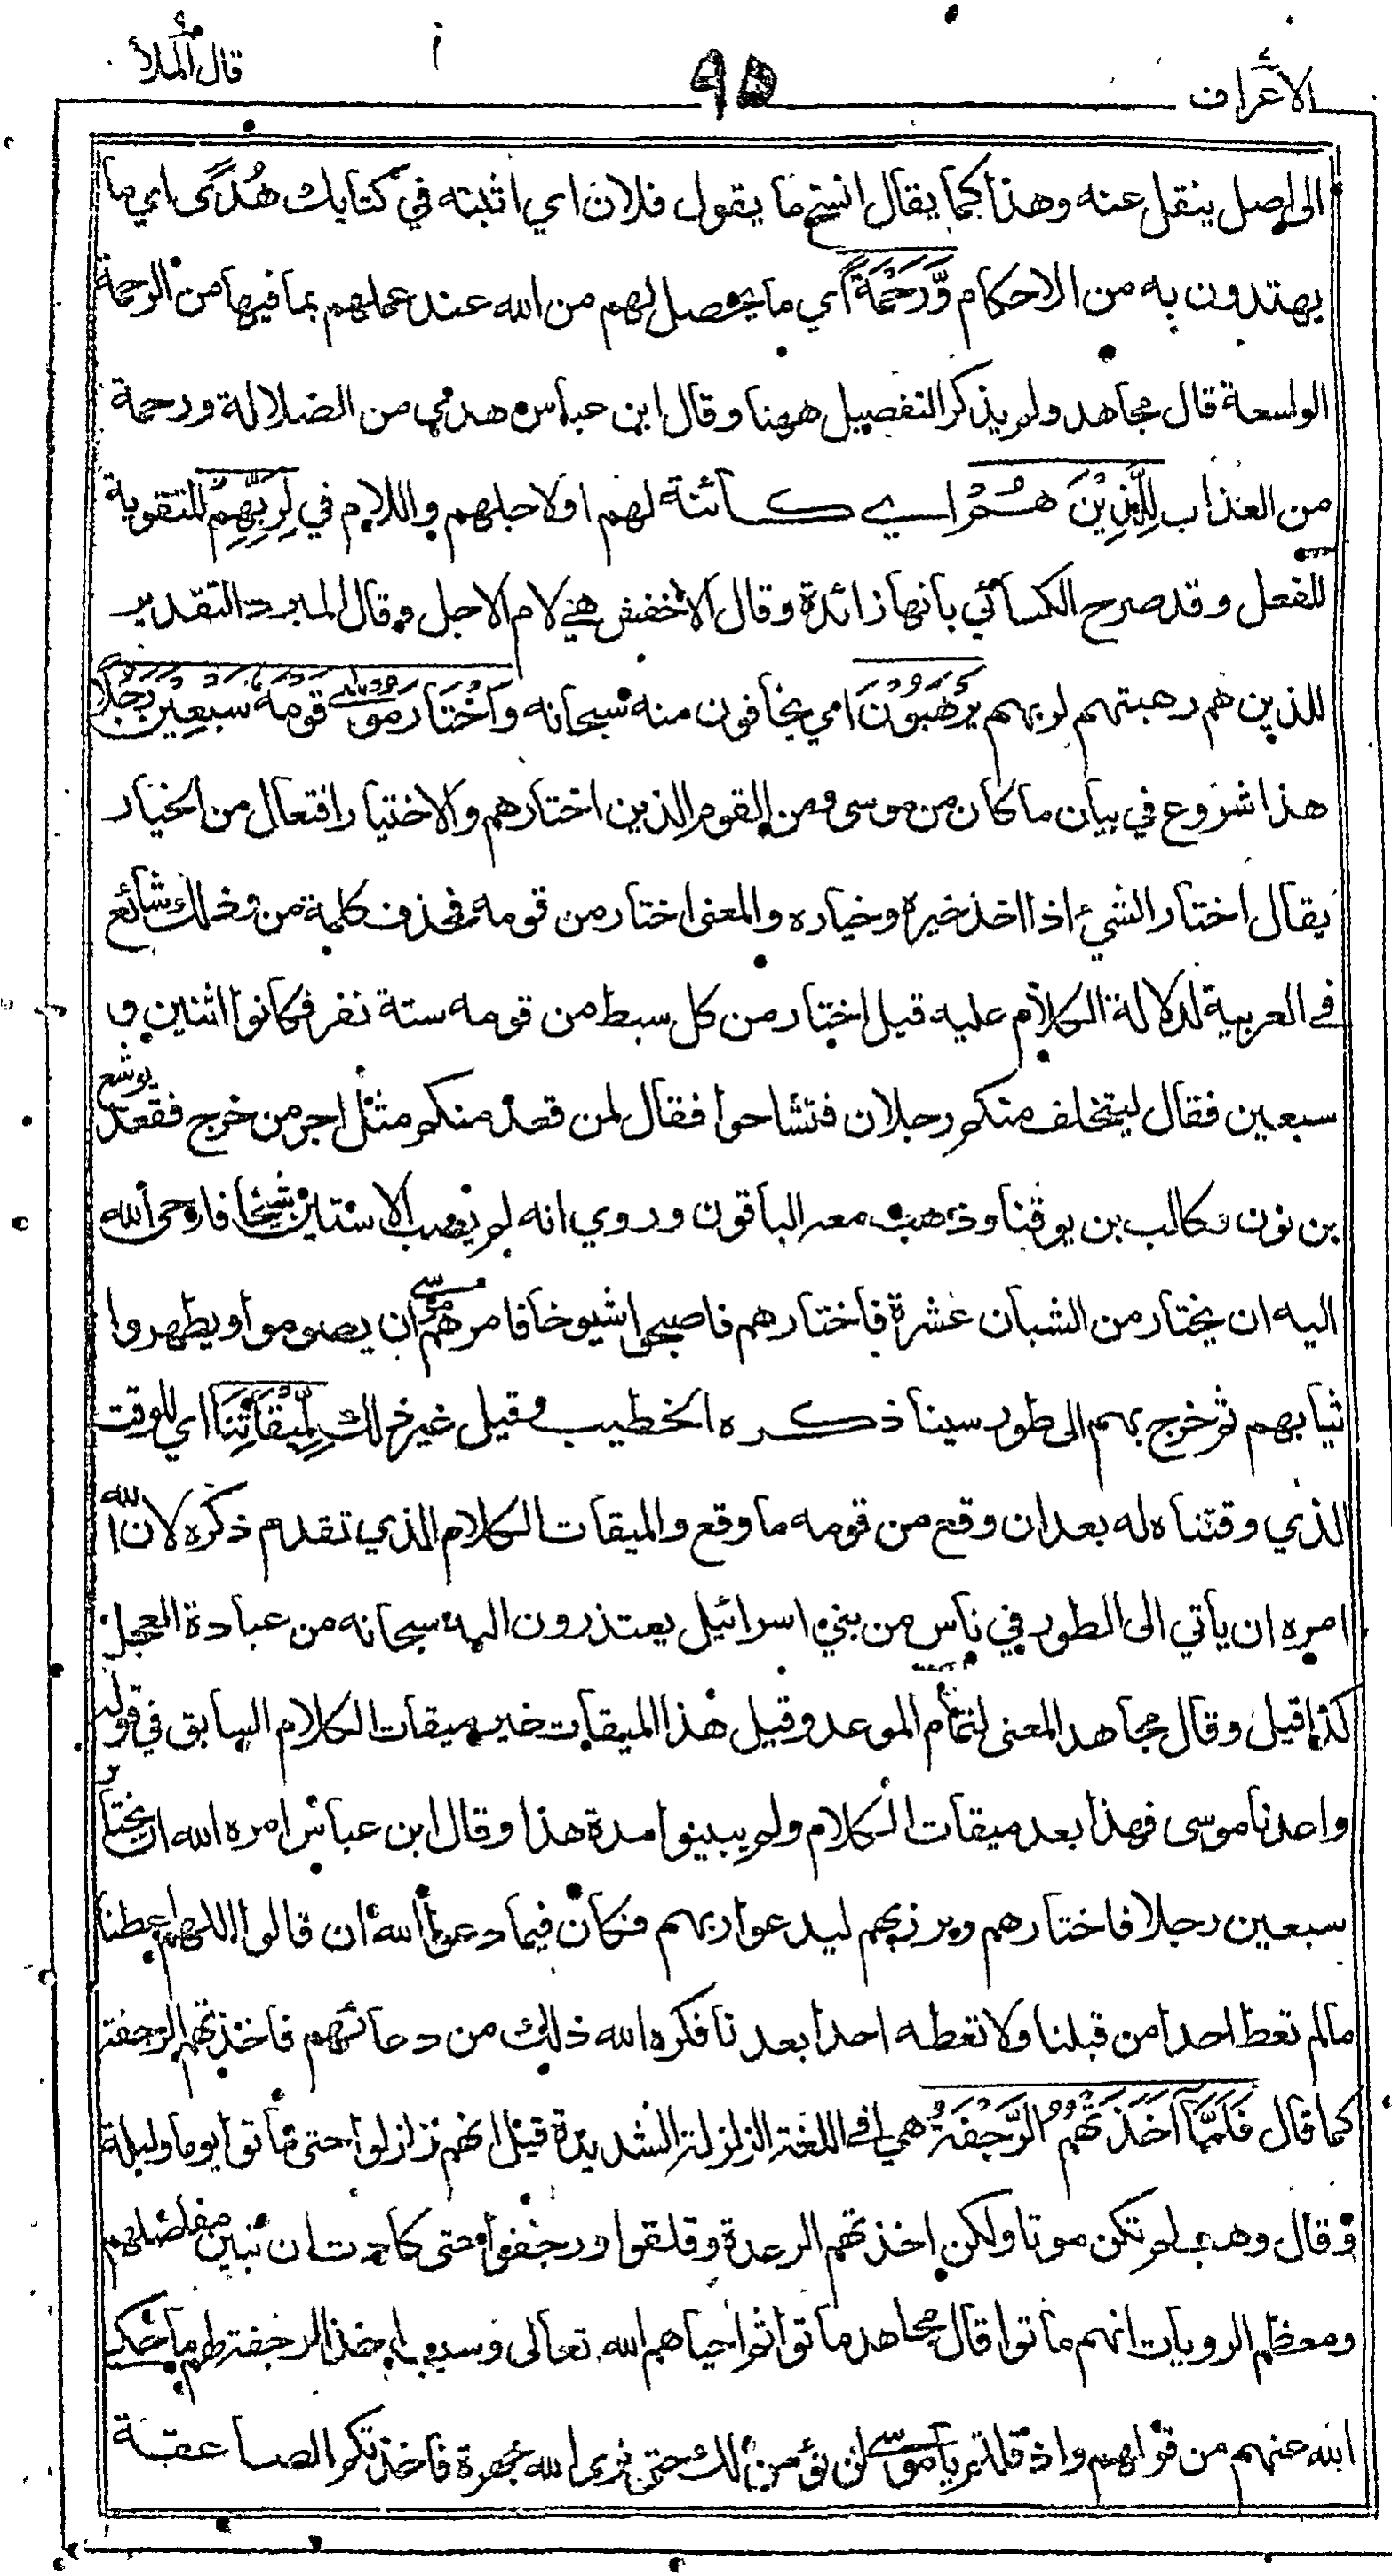 الاعراف
٩٥
قال الملأ
الى اصل ينقل عنه وهذا كما يقال انسخ ما يقول فلان اي اثبته في كتابك هُدًى اي ما
يهتدون به من الاحكام وَّرَحْمَةً اي ما يحصل لهم من الله عند عملهم بما فيها من الرحمة
الواسعة قال مجاهد ولم يذكر التفصيل ههنا وقال ابن عباس هدى من الضلالة ورحمة
من العذاب لِلَّذِيْنَ هُمْ اي كائنة لهم او لاجلهم واللام في لِرَبِّهِمْ للتقوية
للفعل وقد صرح الكسائي بانها زائدة وقال الاخفش هي لام الاجل وقال المبرد التقدير
للذين هم رهبتهم لربهم يَرْهَبُوْنَ اي يخافون منه سبحانه وَاخْتَارَ مُوْسٰى قَوْمَهٗ سَبْعِيْنَ رَجُلًا
هذا شروع في بيان ما كان من موسى ومن القوم الذين اختارهم والاختيار افتعال من الخيار
يقال اختار الشيء اذا اخذ خيره وخياره والمعنى اختار من قومه فحذف كلمة من وذلك شائع
في العربية لدلالة الكلام عليه قيل اختار من كل سبط من قومه ستة نفر فكانوا اثنين و
سبعين فقال ليتخلف منكم رجلان فتشاحوا فقال لمن قعد منكم مثل اجر من خرج فقعد يوشع
بن نون وكالب بن يوقنا وذهب معه الباقون وروي انه لم يصب الا ستين شيخا فاوحى الله
اليه ان يختار من الشبان عشرة فاختارهم فاصبحوا شيوخا فامرهم موسى ان يصوموا ويطهروا
ثيابهم ثم خرج بهم الى طور سينا ذكره الخطيب وقيل غير ذلك لِّمِيْقَاتِنَا اي للوقت
الذي وقتناه له بعد ان وقع من قومه ما وقع والميقات الكلام الذي تقدم ذكره لان الله
امره ان يأتي الى الطور في ناس من بني اسرائيل يعتذرون اليه سبحانه من عبادة العجل
كذا قيل وقال مجاهد المعنى لتمام الموعد وقيل هذا الميقات غير ميقات الكلام السابق في قوله
واعدنا موسى فهذا بعد ميقات الكلام ولم يبينوا مدة هذا وقال ابن عباس امره الله ان يختار
سبعين رجلا فاختارهم وبرز بهم ليدعوا ربهم فكان فيما دعوا الله ان قالوا اللهم اعطنا
مالم تعط احدا من قبلنا ولا تعطه احدا بعدنا فكره الله ذلك من دعائهم فاخذتهم الرجفة
كما قال فَلَمَّآ اَخَذَتْهُمُ الرَّجْفَةُ هي في اللغة الزلزلة الشديدة قيل انهم زلزلوا حتى ماتوا يوما وليلة
وقال وهب لم تكن موتا ولكن اخذتهم الرعدة وقلقوا ورجفوا حتى كادت ان تبين مفاصلهم
ومعظم الرويات انهم ماتوا قال مجاهد ماتوا ثم احياهم الله تعالى وسبب اخذ الرجفة لهم ما حكى
الله عنهم من قولهم واذ قلتم يا موسى لن نؤمن لك حتى نرى الله جهرة فاخذتكم الصاعقة